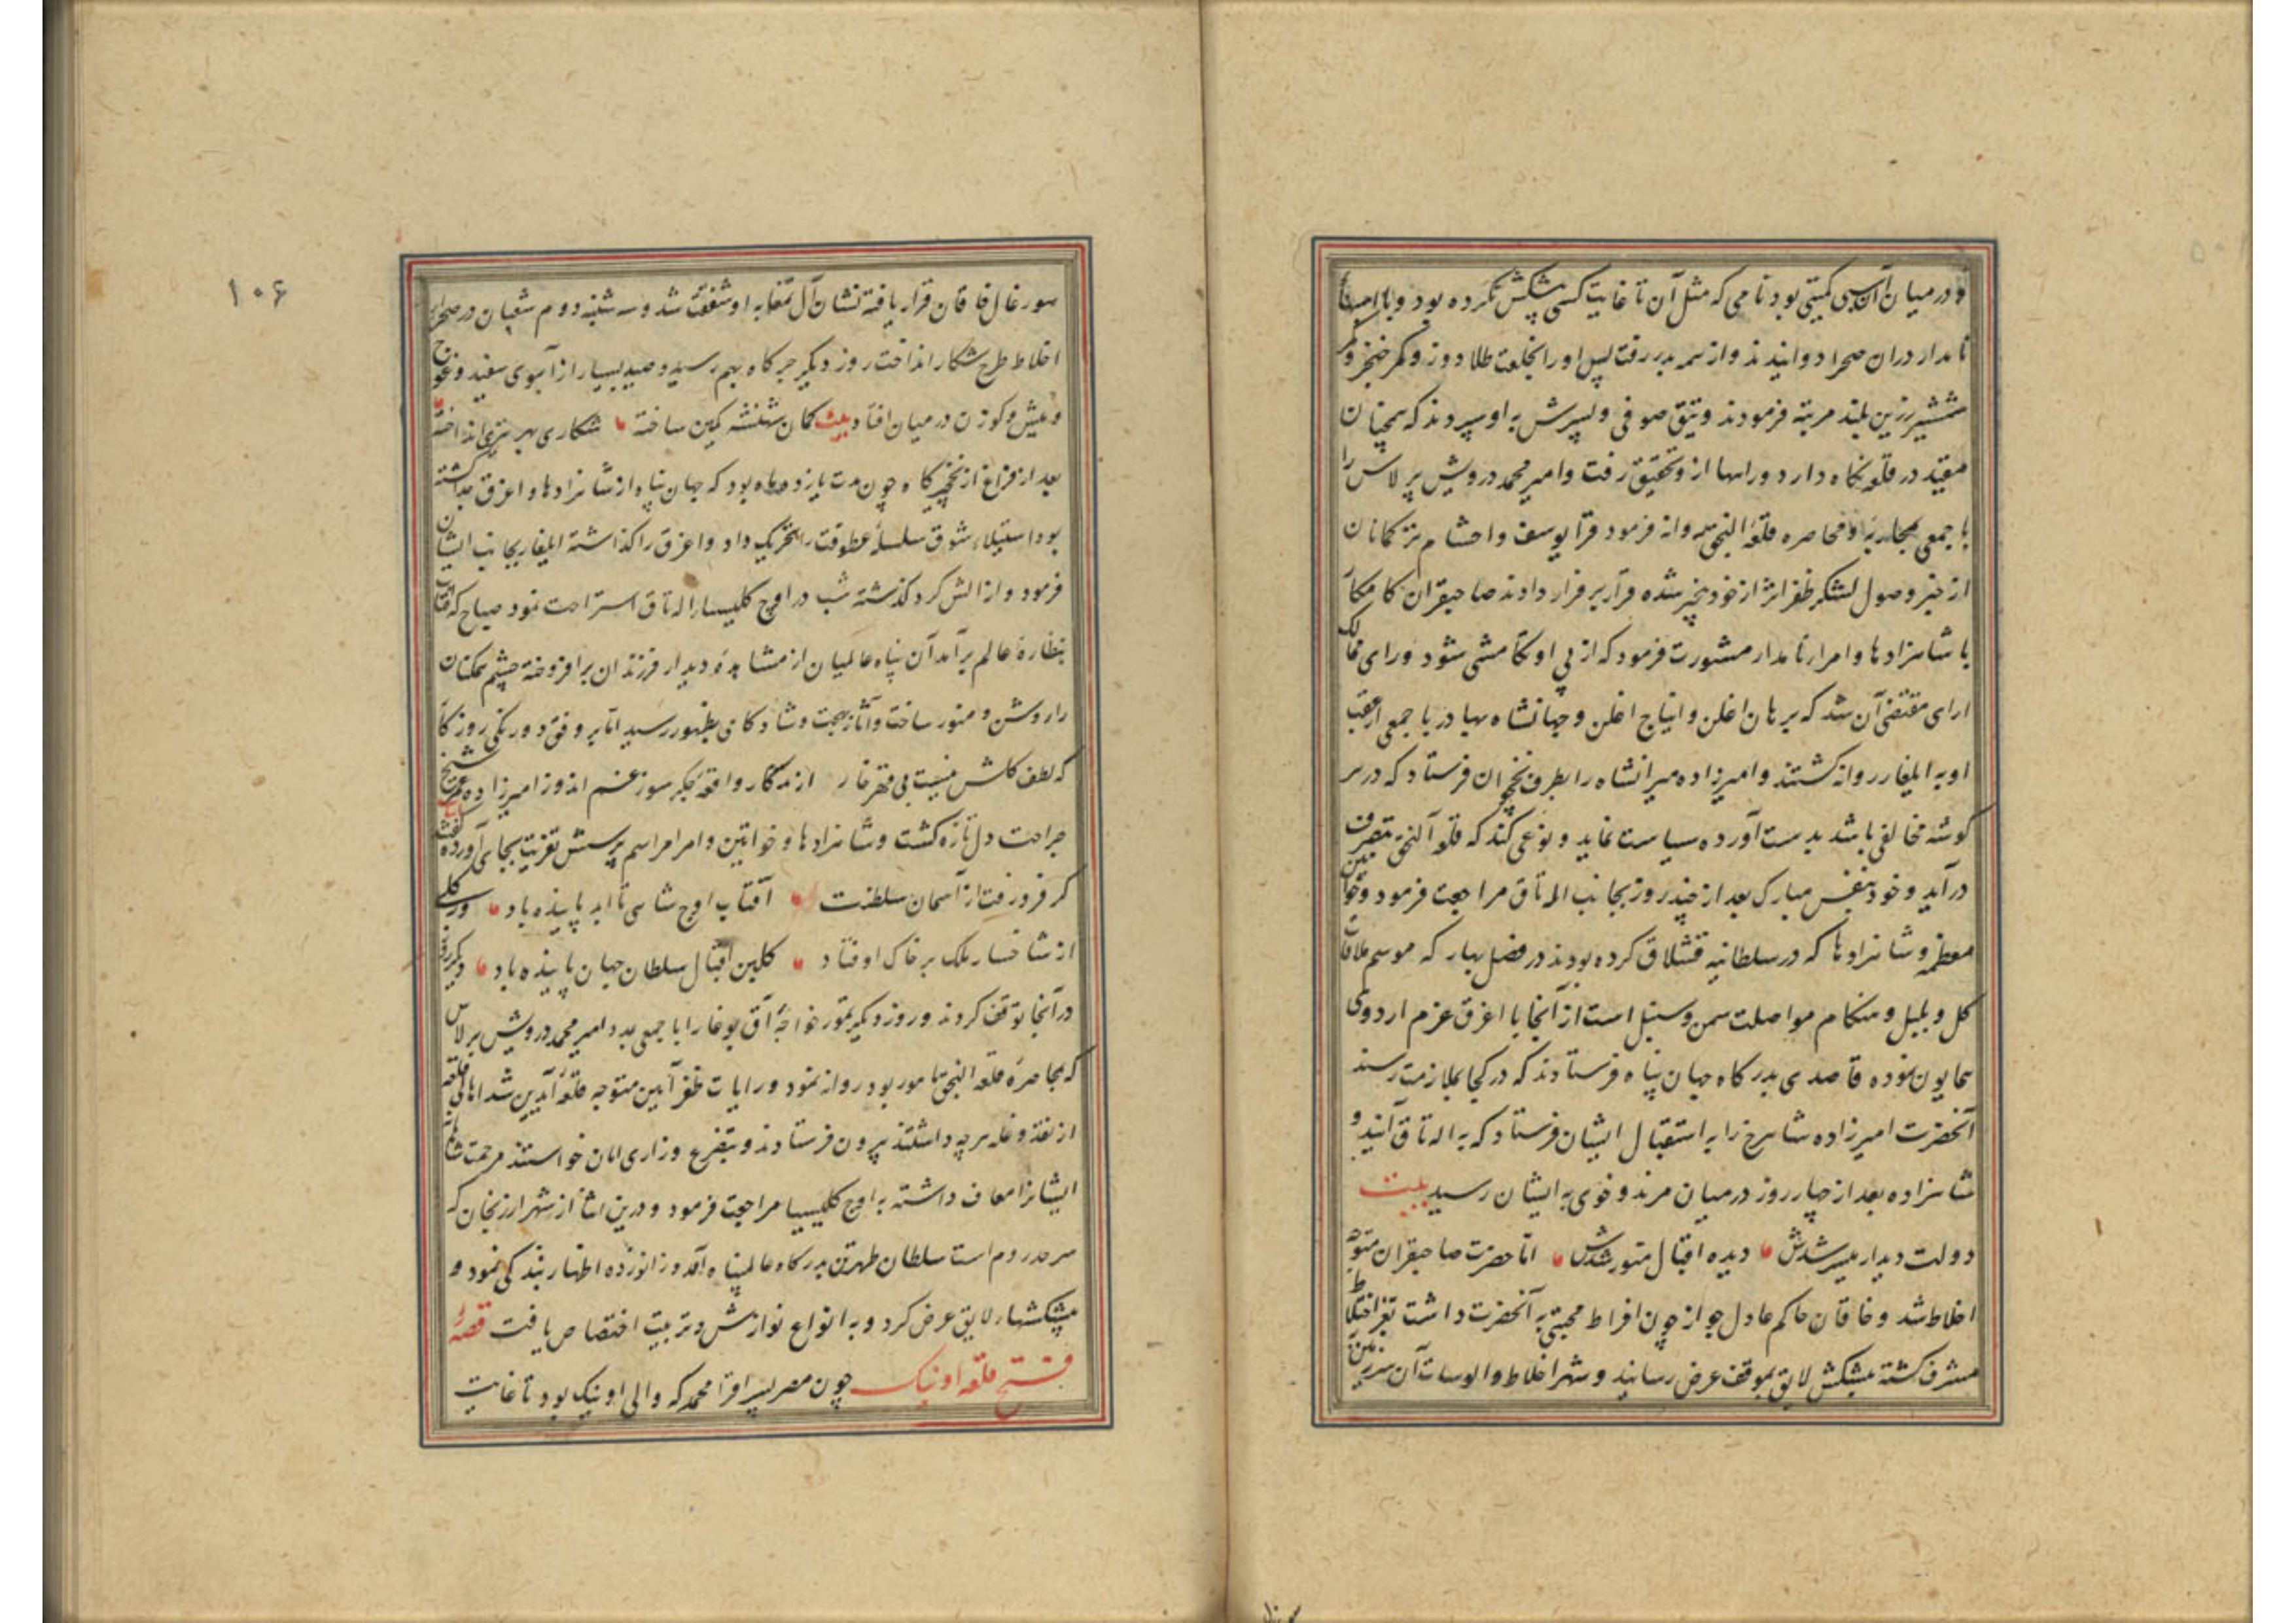 و در میان آن اسبی کمیتی بود نامی که مثل آن تا غایت کسی پیشکش نکرده بود و با
نامدار دران صحرا دوانیدند و از همه بدر رفت پس او را بخلعت طلا دوز و کمر خنجر و
شمشیر زرین بلند مرتبه فرمودند و یتق صوفی و پسرش به او سپردند که همچنان
مقید در قلعه نکاه دارد و راهها از و تحقیق رفت و امیر محمد درویش برلاس را
با جمعی بمحاربه و محاصره قلعه النجق روانه فرمود قرا یوسف و احشام ترکمانان
از خبر وصول لشکر ظفر اثر از خود بیخبر شده قرار بر فرار دادند صاحبقران کامکار
با شاهزادها و امراء نامدار مشورت فرمود که از پی او تکامشی شود و رای ممالک
ارای مقتضی آن شد که برهان اغلن و ایباج اغلن و جهانشاه بهادر با جمعی از عقب
او به ایلغار روانه کشتند و امیرزاده میرانشاه را بطرف نخجوان فرستاد که در هر
کوشه مخالفی باشد بدست آورده سیاست نماید و نوعی کند که قلعه النجق بتصرف
در آید و خود بنفس مبارک بعد از چند روز بجانب اله تاق مراجعت فرمود و خواتین
معظمه و شاهزادها که در سلطانیه قشلاق کرده بودند در فصل بهار که موسم ملاقات
کل و بلبل و هنکام مواصلت سمن و سنبل است از آنجا با اغرق عزم اردوی
همایون نموده قاصدی بدرکاه جهان پناه فرستادند که در کجا بملازمت رسند
آنحضرت امیرزاده شاهرخ را به استقبال ایشان فرستاد که به اله تاق آیند و
شاهزاده بعد از چهار روز درمیان مرند و خوی به ایشان رسید بیت
دولت دیدار میسر شدش دیده اقبال منور شدش اما حضرت صاحبقران متوجه
اخلاط شد و خاقان حاکم عادل جواز چون افراط محبتی به آنحضرت داشت بعز اختلاط
مشرف کشته پیشکش لایق بموقف عرض رسانید و شهر اخلاط و الوسات آن سرزمین
۱۰۶
سورغال خاقان قرار یافته نشان آل تمغا به او شفقت شد و سه شنبه دوم شعبان در صحرای
اخلاط طرح شکار انداخت روز دیکر جرکاه بهم رسید و صید بسیار از آهوی سفید و غوج
و میش و کوزن در میان افتاد بیت کمان شهنشه کمین ساخته شکاری بهر تیری انداخته
بعد از فراغ از نخجیرکاه چون مدت یازده ماه بود که جهان پناه از شاهزادها و اغرق جدا کشته
بود استیلاء شوق سلسله عطوفت را تحریک داد و اغرق را کذاشته ایلغار بجانب ایشان
فرمود و از الش کرد کذشته شب در اوج کلیسیا اله تاق استراحت نمود صباح که آفتاب
بنظاره عالم برآمد آن پناه عالمیان از مشاهده دیدار فرزندان برافروخته چشم همکنان
را روشن و منور ساخت و آثار بهجت و شادکامی بظهور رسید اما بر وفق دورنکی روزکار
که لطف کاش نیست بی قهر خار از تذکار واقعه جکر سوز غم اندوز امیرزاده عمر شیخ
جراحت دل تازه کشت و شاهزادها و خواتین و امرا مراسم پرسش تعزیت بجای آورده کفتند بیت
کر فرو رفت از آسمان سلطنت آفتاب اوج شاهی تا ابد پاینده باد ور کلی
از شاخسار ملک بر خاک اوفتاد کلبن اقبال سلطان جهان پاینده باد دیکر روز
در آنجا توقف کردند و روز دیکر تمور خواجه آق بوغا را با جمعی بمدد امیر محمد درویش برلاس
که بمحاصره قلعه النجق مامور بود روانه نمود و رایات ظفر آیین متوجه قلعه آیدین شد اهالی قلعه
از نقد و غله هرچه داشتند بیرون فرستادند و بتضرع و زاری امان خواستند مرحمت شاهانه
ایشانرا معاف داشته به اوج کلیسیا مراجعت فرمود و درین اثنا از شهر ارزنجان که
سرحد روم است سلطان طهرتن بدرکاه عالمپناه آمد و زانو زده اظهار بندکی نمود و
پیشکشهاء لایق عرض کرد و به انواع نوازش و تربیت اختصاص یافت قصه
فتح قلعه اونیک چون مصر پسر قرا محمد که والی اونیک بود تا غایت